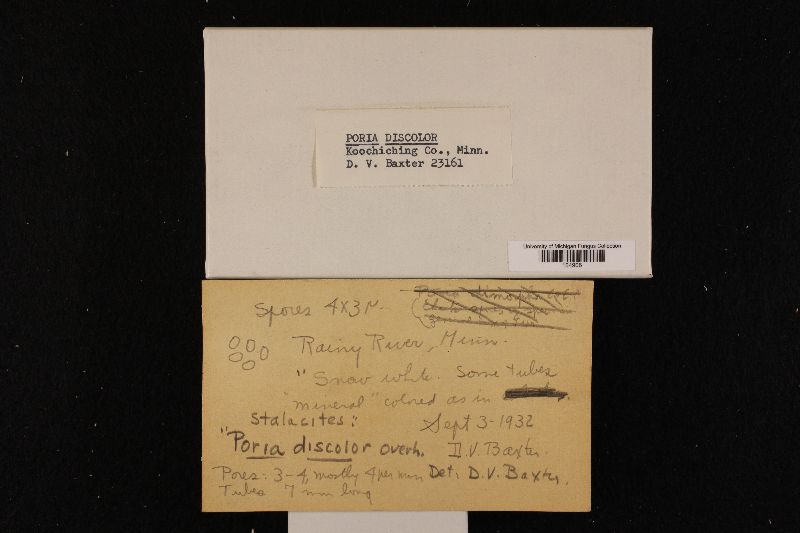 PORIA DISCOLOR
Koochiching Co., Minn.
D. V. Baxter 23161
University of Michigan Fungus Collection
Spores 4x3 µ
Poria
Rainy River, Minn.
"Snow white. Some tubes
"mineral" colored as in
stalacites."
Sept 3-1932
"Poria discolor overh.
D.V. Baxter.
Pores: 3-4, mostly 4 per mm
Det: D.V. Baxter.
Tubes 7 mm long